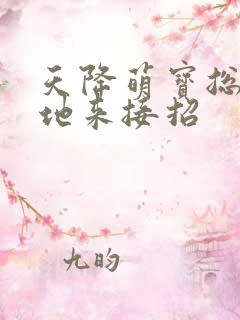 天降萌宝总
地来接招
九昀